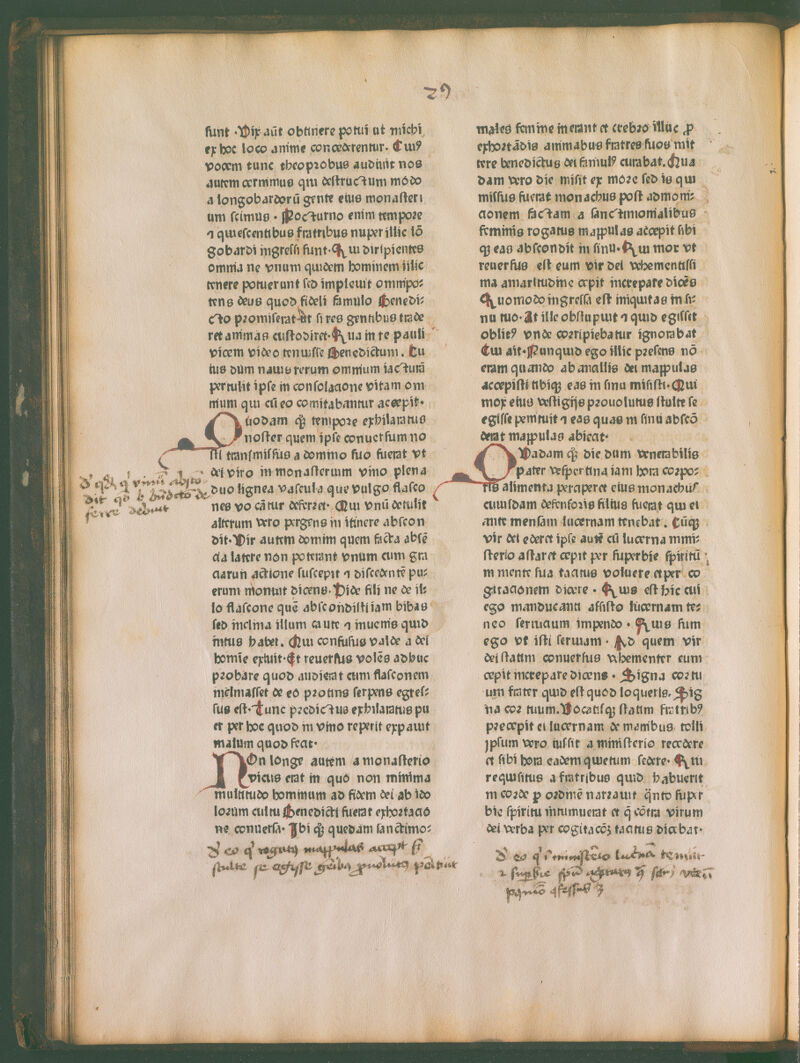 29
sunt ·Vix aūt obtinere potui ut michi
ex hoc loco anime concederentur. Cuiꝰ
vocem tunc theoprobus audiuit nos
autem cernimus qui destructum modo
a longobardorū gente eius monasteri
um scimus · Nocturno enim tempore
⁊ quiescentibus fratribus nuper illic lō
gobardi ingressi sunt· Qui diripientes
omnia ne vnum quidem hominem illic
tenere potuerunt sed impleuit omnipo⸗
tens deus quod fideli famulo Benedi⸗
cto promiserat·ut si res gentibus trade
ret animas custodiret· Qua in re pauli
vicem video tenuisse Benedictum. Cu
ius dum nauis rerum omnium iacturā
pertulit ipse in consolacione vitam om
nium qui cū eo comitabantur accepit·
Quodam qꝫ tempore exhilaratus
noster quem ipse conuersum no
sti transmissus a domino suo fuerat vt
dei viro in monasterium vino plena
duo lignea vascula que vulgo flasco
nes vocātur deferret· Qui vnū detulit
alterum vero pergens in itinere abscon
dit· Vir autem domini quem facta absē
cia latere non poterant vnum cum gra
ciarum actione suscepit ⁊ discedentē pu⸗
erum monuit dicens· Vide fili ne de il⸗
lo flascone quē abscondisti iam bibas
sed inclina illum caute ⁊ inuenis quid
intus habet. Qui confusus valde a dei
homine exiuit· Et reuersus volēs adhuc
probare quod audierat cum flasconem
inclinasset de eo protinus serpens egres⸗
sus est· Tunc predictus exhilaratus pu
er per hoc quod in vino reperit expauit
malum quod fecit·
Non longe autem a monasterio
vicus erat in quo non minima
multitudo hominum ad fidem dei ab ido
lorum cultu Benedicti fuerat exhortacio
ne conuersa· Ibi qꝫ quedam sanctimo⸗
males femine inerant et crebro illuc p̲
exhortādis animabus fratres suos mit
tere benedictus dei famulꝰ curabat. Qua
dam vero die misit ex more sed is qui
missus fuerat monachus post admoni⸗
cionem factam a sanctimonialibus
feminis rogatus mappulas accepit sibi
qꝫ eas abscondit in sinu· Qui mox vt
reuersus est eum vir dei vehementissi
ma amaritudine cepit increpare dicēs
Quomodo ingressa est iniquitas in si⸗
nu tuo· At ille obstupuit ⁊ quid egisset
oblitꝰ vnde corripiebatur ignorabat
Cui ait· Nunquid ego illic presens nō
eram quando ab ancillis dei mappulas
accepisti tibiqꝫ eas in sinu misisti· Qui
mox eius vestigijs prouolutus stulte se
egisse penituit ⁊ eas quas in sinu abscō
derat mappulas abiecit·
Quadam qꝫ die dum venerabilis
pater vespertina iam hora corpo⸗
ris alimenta perciperet eius monachꝰ
cuiusdam defensoris filius fuerat qui ei
ante mensam lucernam tenebat. Cūqꝫ
vir dei ederet ipse autē cū lucerna mini⸗
sterio astaret cepit per superbie spiritū
in mente sua tacitus voluere et per co
gitacionem dicere · Quis est hic cui
ego manducanti assisto lucernam te⸗
neo seruicium impendo · Quis sum
ego vt isti seruiam · Ad quem vir
dei statim conuersus vehementer eum
cepit increpare dicens · Signa cor tu
um frater quid est quod loqueris. Sig
na cor tuum. Vocatisqꝫ statim fratribꝰ
precepit ei lucernam de manibus tolli
ipsum vero iussit a ministerio recedere
et sibi hora eadem quietum sedere· Qui
requisitus a fratribus quid habuerit
in corde p ordinē narrauit q̄nto super
bie spiritu intumuerat et q̄ cōtra virum
dei verba per cogitacōeꝫ tacitus dicebat·